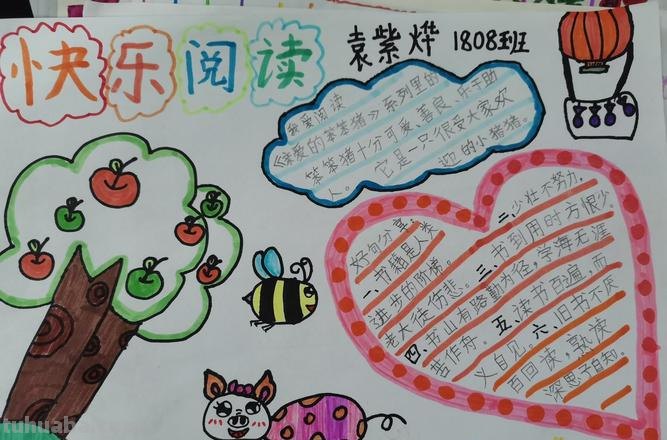 快乐阅读
袁紫烨 1808班
我爱阅读
《亲爱的笨笨猪》系列里的
笨笨猪十分可爱、善良、乐于助
人。它是一只很受大家欢
迎的小猪猪。
好句分享：
一、书籍是人类
进步的阶梯。
二、少壮不努力，
老大徒伤悲。三、书到用时方恨少。
四、书山有路勤为径，学海无涯
苦作舟。五、读书百遍，而
义自见。六、旧书不厌
百回读，熟读
深思子自知。
tuhuabe